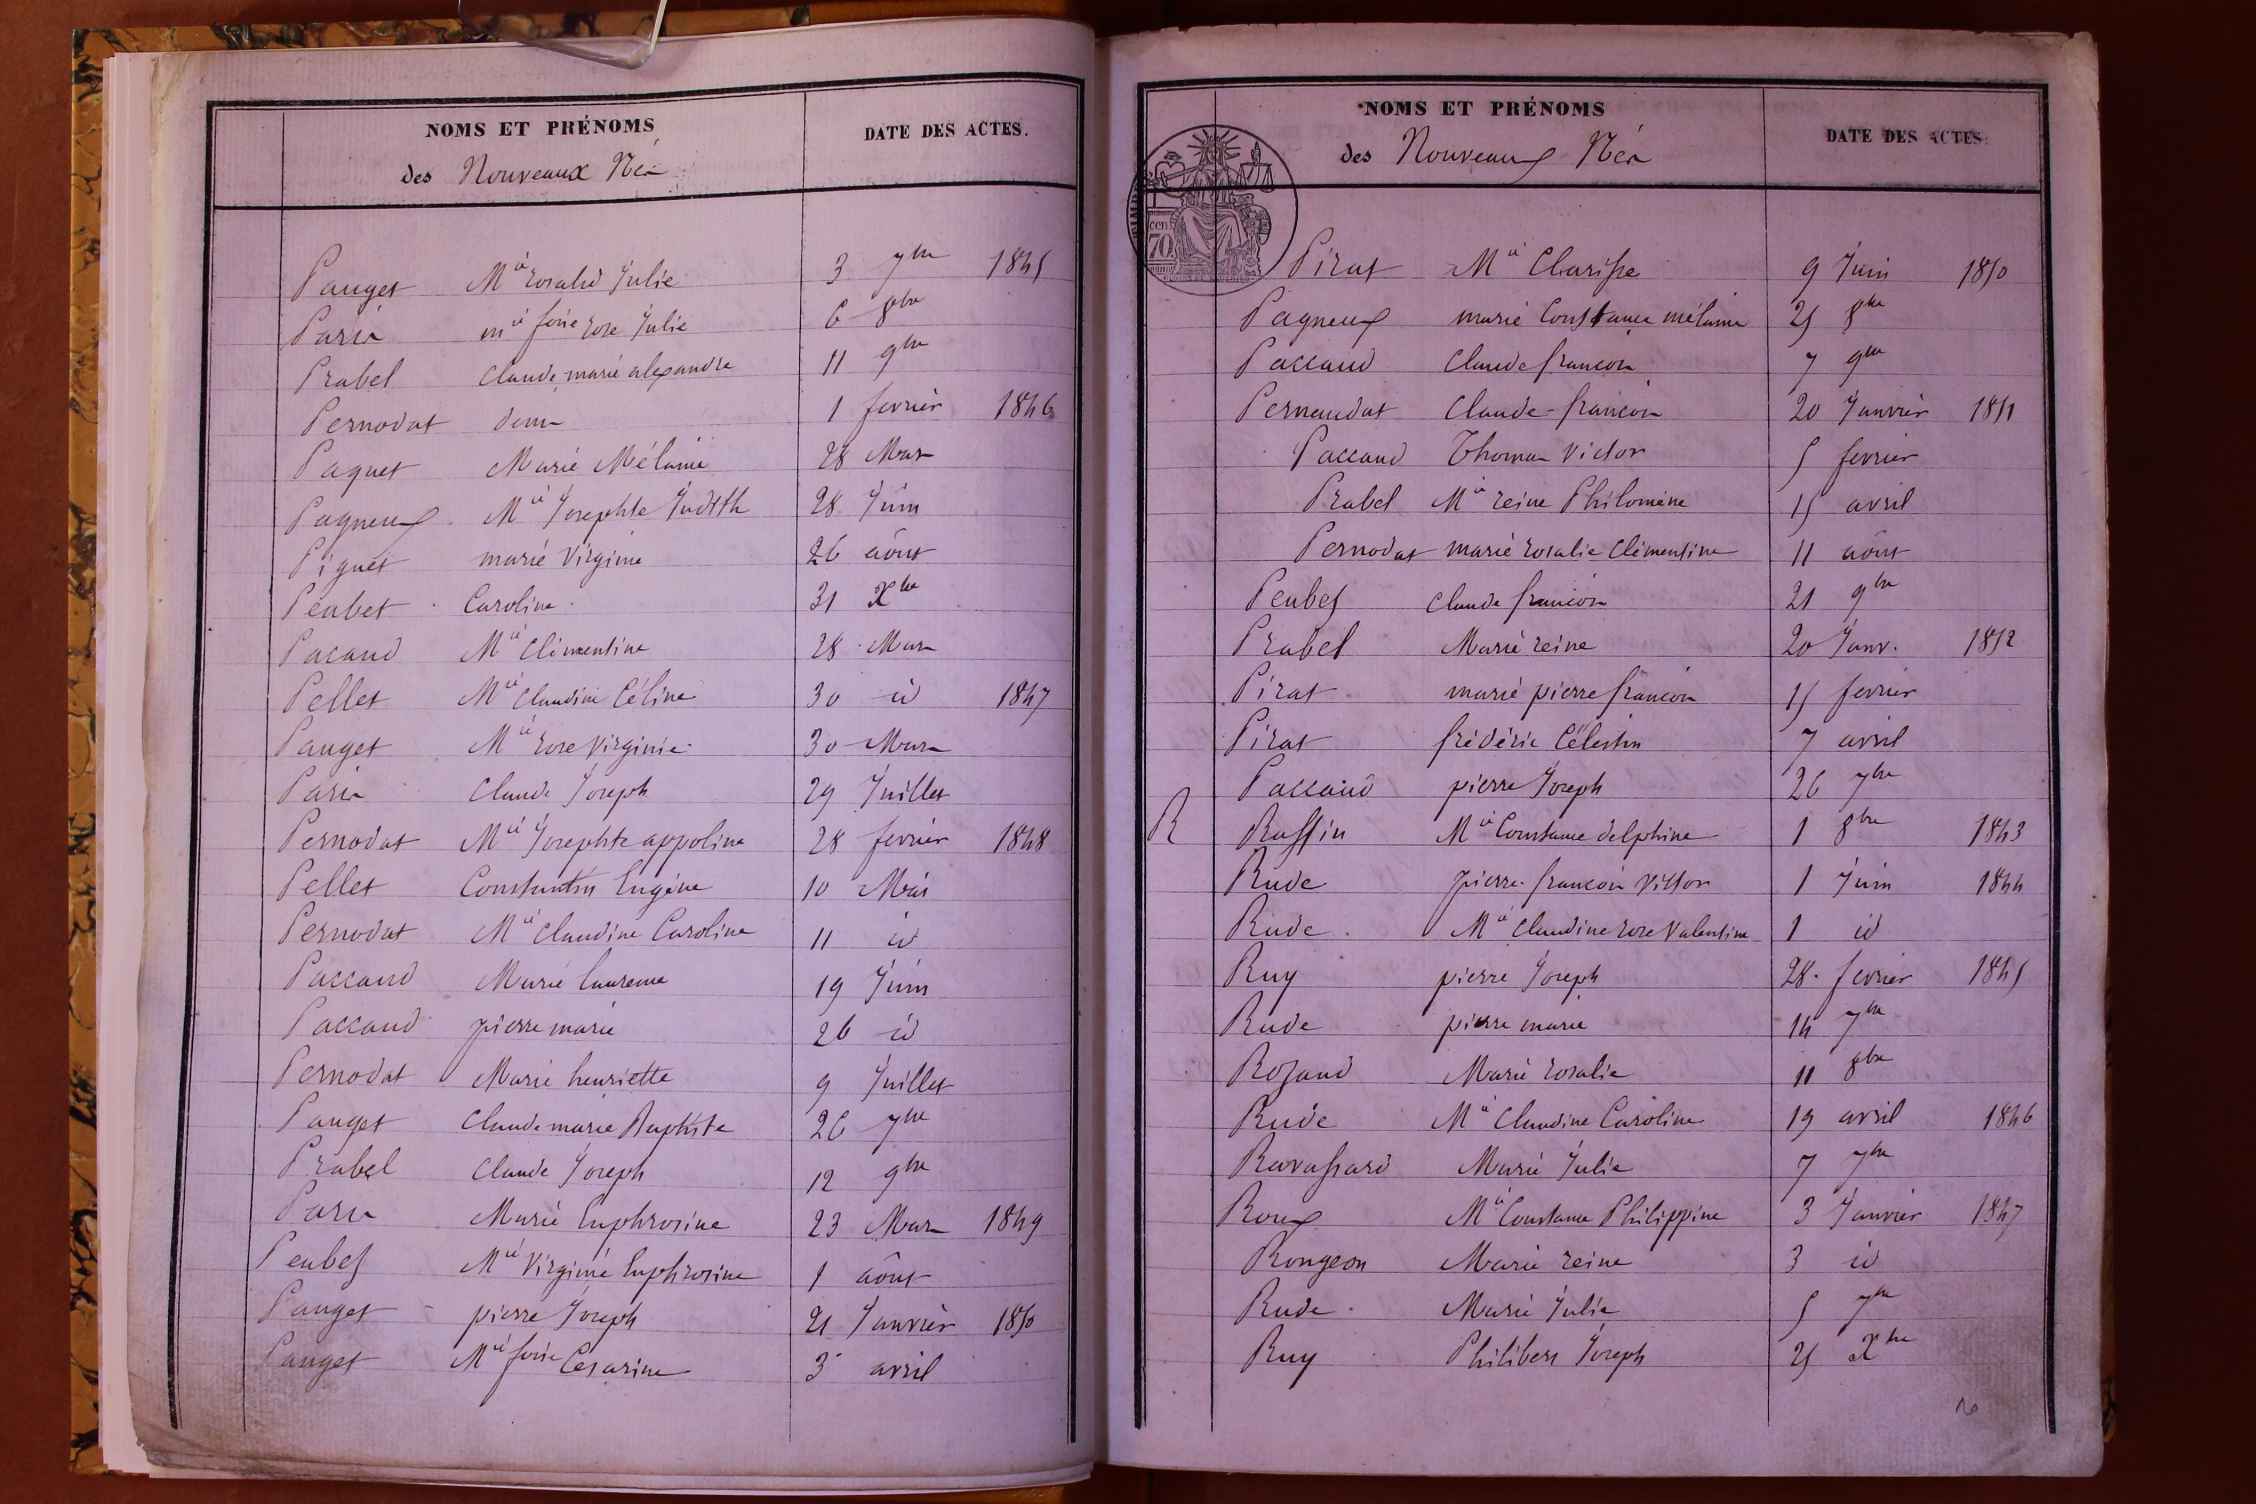 NOMS ET PRÉNOMS DATE DES ACTES.
des Nouveaux Nés
Pauget Mie rosalie Julie 3 7bre 1845
Paris mie fsoise rose Julie 6 8bre
Prabel claude marie alexandre 11 9bre
Pernodat 1 fevrier 1846
Paquet Marie Mélanie 28 Mars
Pagneux Mie Josephte Judith 28 Juin
Piguet marie Virginie 26 aôut
Peubet Caroline 31 Xbre
Pacaud Mie Clémentine 28 Mars
Pellet Mie Claudine Céline 30 id 1847
Pauget Mie rose Virginie 30 Mars
Paris Claude Joseph 29 Juillet
Pernodat Mie Josephte appoline 28 fevrier 1848
Pellet Constantin Eugène 10 Mai
Pernodat Mie Claudine Caroline 11 id
Paccaud Marie laurence 19 Juin
Paccaud pierre marie 26 id
Pernodat Marie henriette 9 Juillet
Pauget Claude marie Baptiste 26 7bre
Prabel Claude Joseph 12 9bre
Paris Marie Euphrosine 23 Mars 1849
Peubet Mie Virginie Euphrosine 1 aôut
Pauget pierre Joseph 21 Janvier 1850
Pauget Mie fsoise Cesarine 3 avril
NOMS ET PRÉNOMS DATE DES ACTES
des Nouveaux Nés
cen 70
Pirat Mie Clarisse 9 Juin 1850
Pagneux marie Constance mélanie 25 8bre
Paccaud Claude françois 7 9bre
Pernaudat Claude-françois 20 Janvier 1851
Paccaud Thomas Victor 5 fevrier
Prabel Mie reine Philomène 15 avril
Pernodat marie rosalie Clémentine 11 aôut
Peubet claude françois 21 9bre
Prabel Marie reine 20 Janv. 1852
Pirat marie pierre françois 15 fevrier
Pirat frédéric Célestin 7 avril
Paccaud pierre Joseph 26 7bre
R Ruffin Mie Constance delphine 1 8bre 1843
Rude pierre-françois Victor 1 Juin 1844
Rude Mie Claudine rose Valentine 1 id
Ruy pierre Joseph 28 fevrier 1845
Rude pierre marie 14 7bre
Rozand Marie rosalie 11 8bre
Rude Mie Claudine Caroline 19 avril 1846
Ravassard Marie Julie 7 7bre
Roux Mie Constance Philippine 3 Janvier 1847
Rongeon Marie reine 3 id
Rude Marie Julie 5 7bre
Ruy Philibert Joseph 25 Xbre